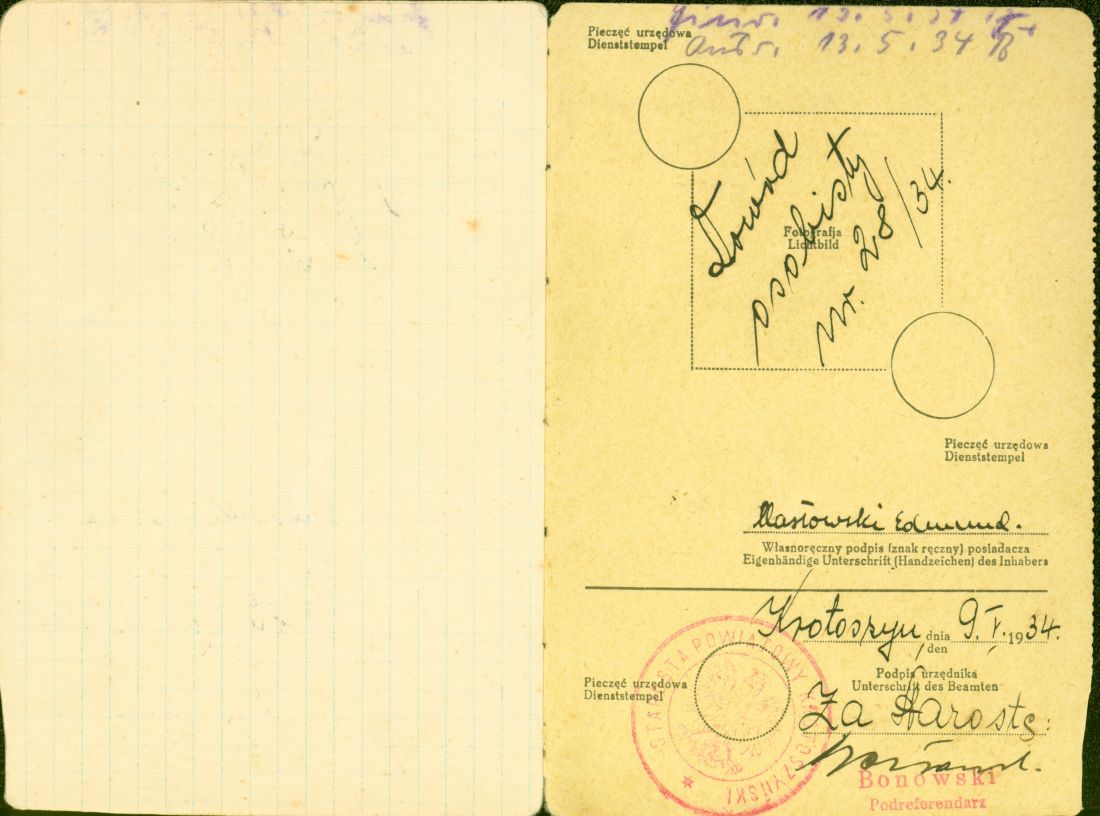 13. 5. 34
13. 5. 34
Pieczęć urzędowa
Dienststempel
Dowód
osobisty
nr. 28/34.
Fotografja
Lichtbild
Pieczęć urzędowa
Dienststempel
Masłowski Edmund.
Własnoręczny podpis (znak ręczny) posiadacza
Eigenhändige Unterschrift (Handzeichen) des Inhabers
Krotoszyn dnia 9. V. 1934.
den
Podpis urzędnika
Unterschrift des Beamten
Pieczęć urzędowa
Dienststempel
STAROSTA POWIATOWY KROTOSZYŃSKI
Za Starostę:
Bonowski
Podreferendarz